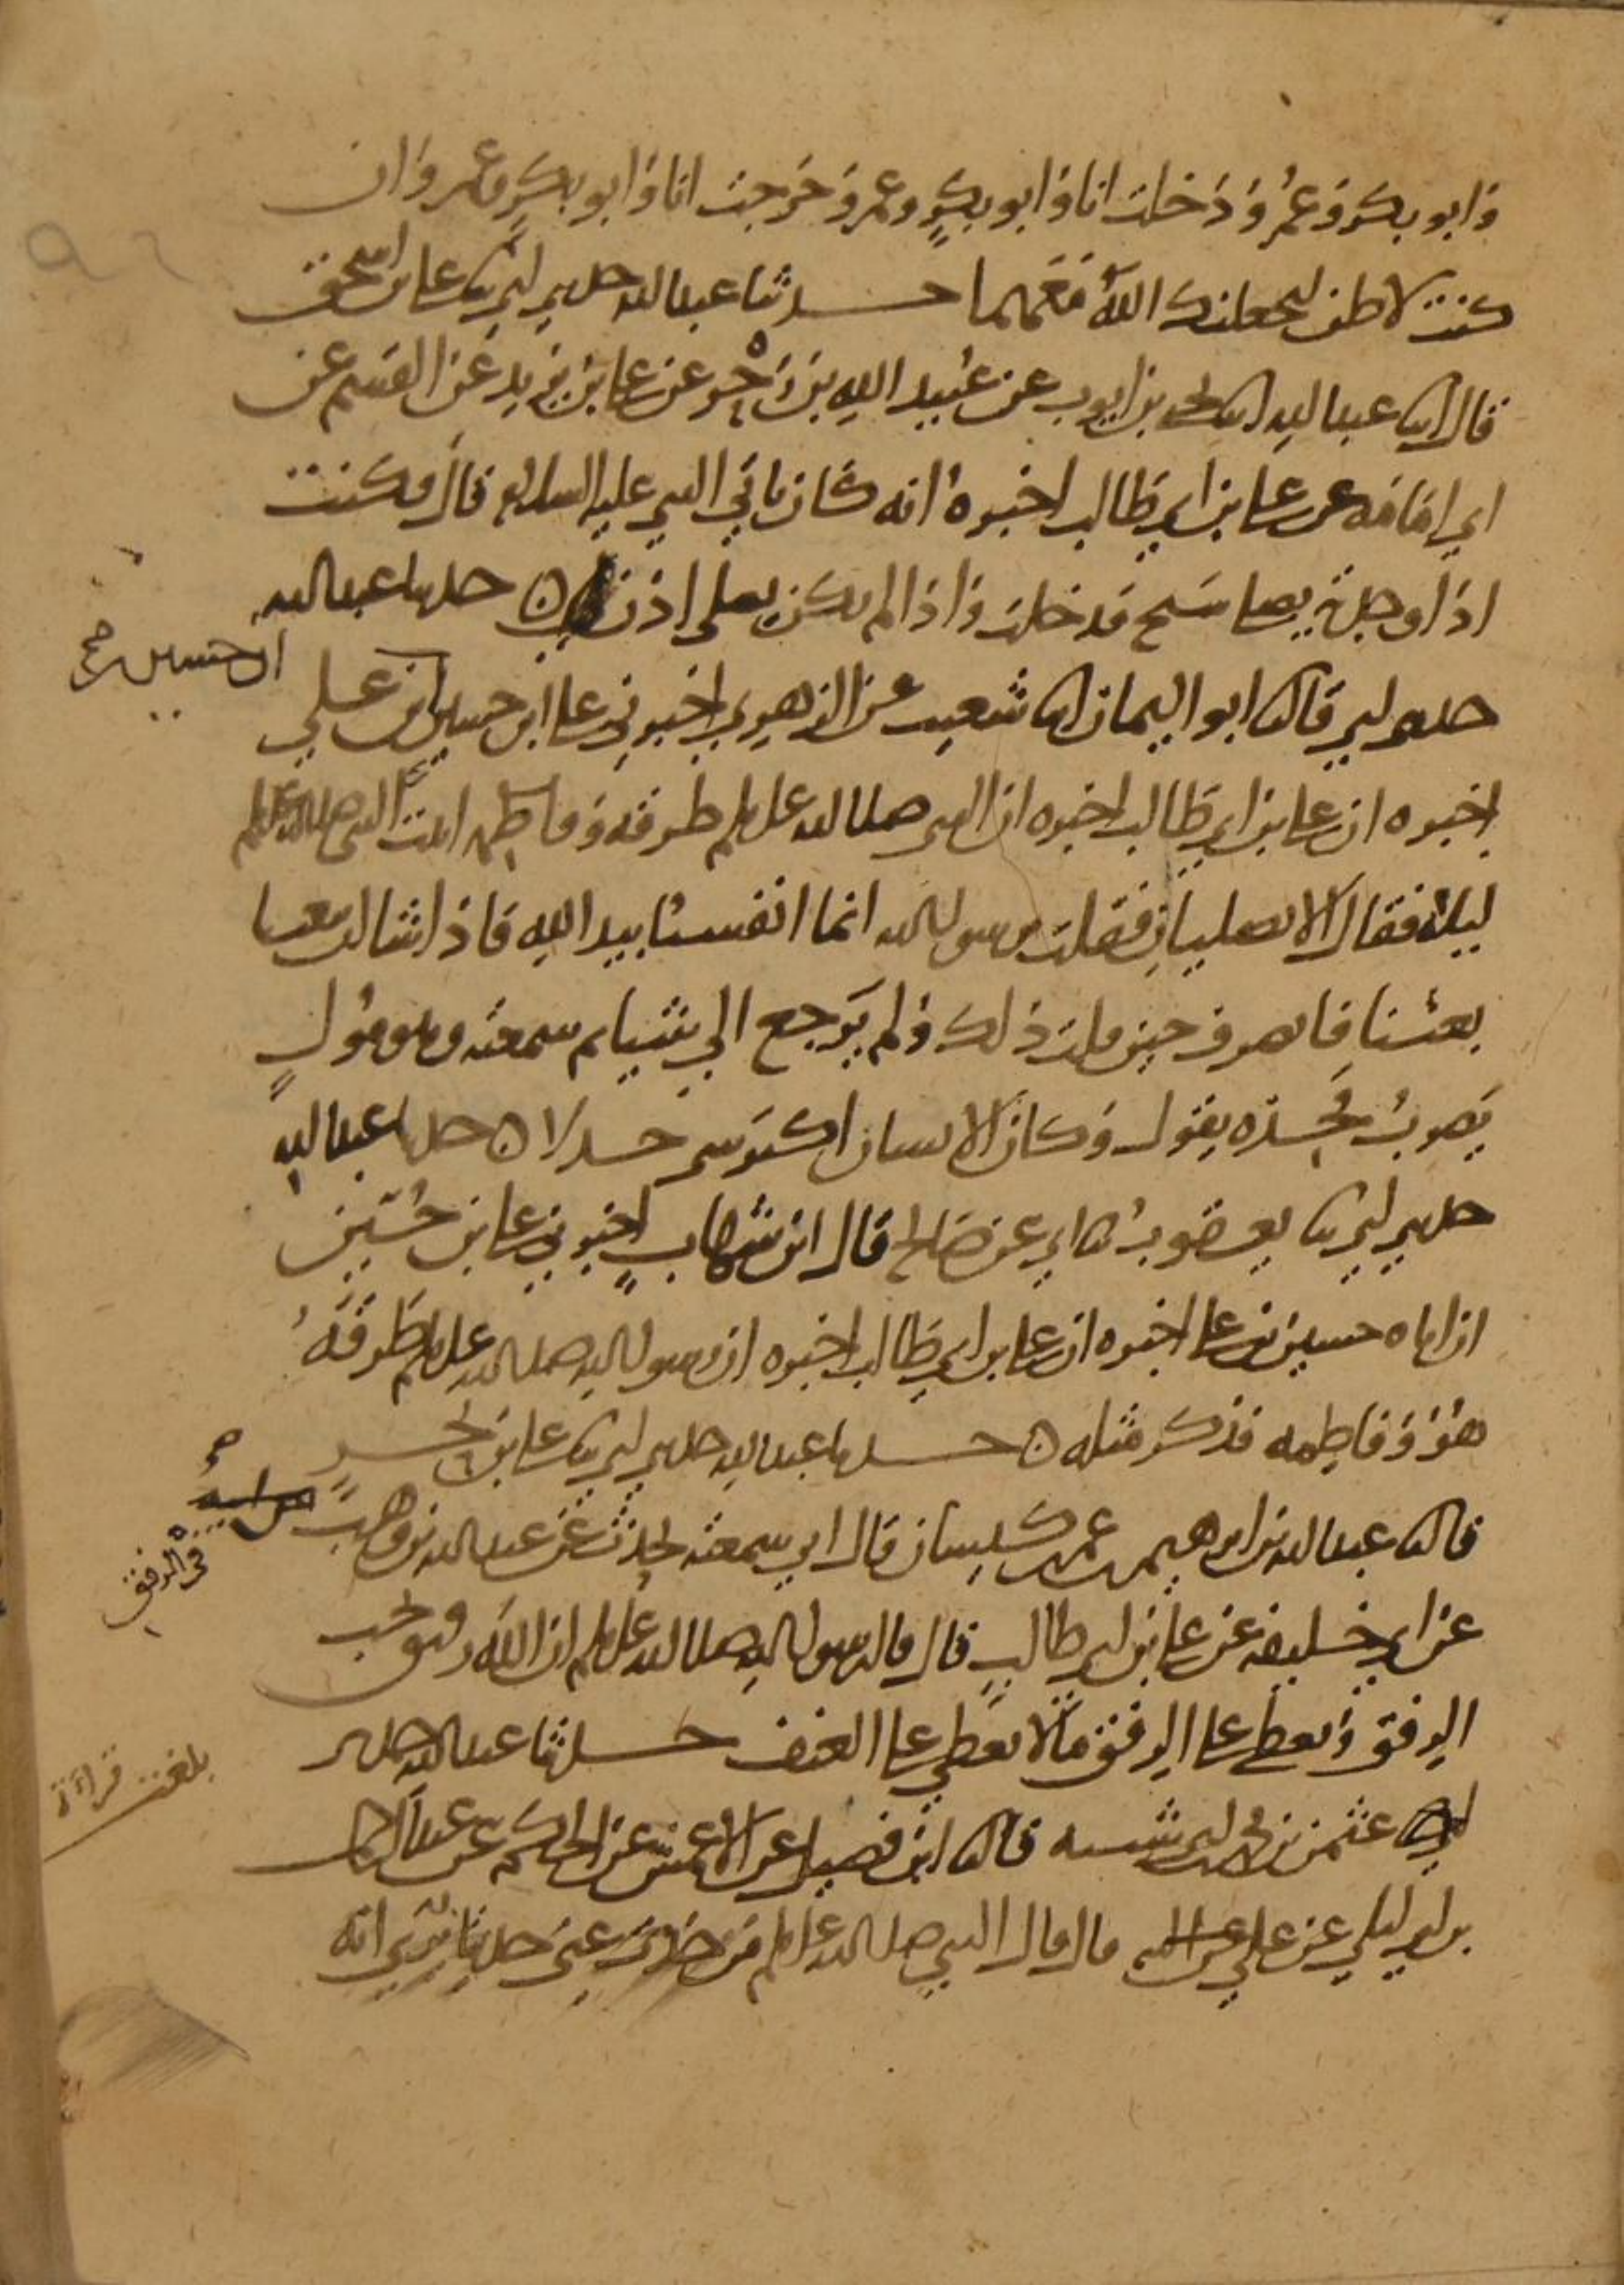 وابو بكر وعمر ودخلت انا وابو بكر وعمر وخرجت انا وابو بكر وعمر وان
كنت لاظن ليجعلنك الله معهما حدثنا عبد الله حدثني ابي ثنا علي بن اسحق
قال انا عبد الله انا يحيى بن ايوب عن عبيد الله بن زحر عن علي بن يزيد عن القسم عن
ابي امامه عن علي بن ابي طالب اخبره انه كان ياتي النبي عليه السلام قال فكنت
اذا وجدته يصلي سبح فدخلت واذا لم يكن يصلي اذن ه حدثنا عبد الله
ابن حسين صح
حدثني ابي قال ثنا ابو اليمان انا شعيب عن الزهري اخبرني علي ابن حسين ان ابن علي
اخبره ان علي بن ابي طالب اخبره ان النبي صلى الله عليه وسلم طرقه وفاطمه ابنت النبي صلى الله عليه وسلم
ليلة فقال الا تصليان فقلت يرسول الله انما انفسنا بيد الله فاذا شا ان يبعثنا
بعثنا فانصرف حين قلت ذلك ولم يرجع الي شيا ثم سمعته وهو مول
يضرب فخذه يقول وكان الانسان اكثر شي جدلا ه حدثنا عبد الله
حدثني ابي ثنا يعقوب ثنا ابي عن صالح قال ابن شهاب اخبرني علي بن حسين
ان اباه حسين بن علي اخبره ان علي بن ابي طالب اخبره ان رسول الله صلى الله عليه وسلم طرقه
هو وفاطمه فذكر مثله ه حدثنا عبد الله حدثني ابي ثنا علي بن بحر
قال ثنا عبد الله بن ابرهيم بن عمر بن كيسان قال ابي سمعته يحدث عن عبد الله بن وهب عن ابيه
صح
في الرفق
عن ابي خليفه عن علي بن ابي طالب قال قال رسول الله صلى الله عليه وسلم ان الله رفيق يحب
الرفق ويعطي علي الرفق ما لا يعطي علي العنف حدثنا عبد الله حدثني
بلغت قراءة
عثمن بن ابي شيبه قال ثنا ابن فضيل عن الاعمش عن الحكم عن عبد الرحمن
بن ابي ليلي عن علي قال قال النبي صلى الله عليه وسلم من حدث عني حديثا يري انه